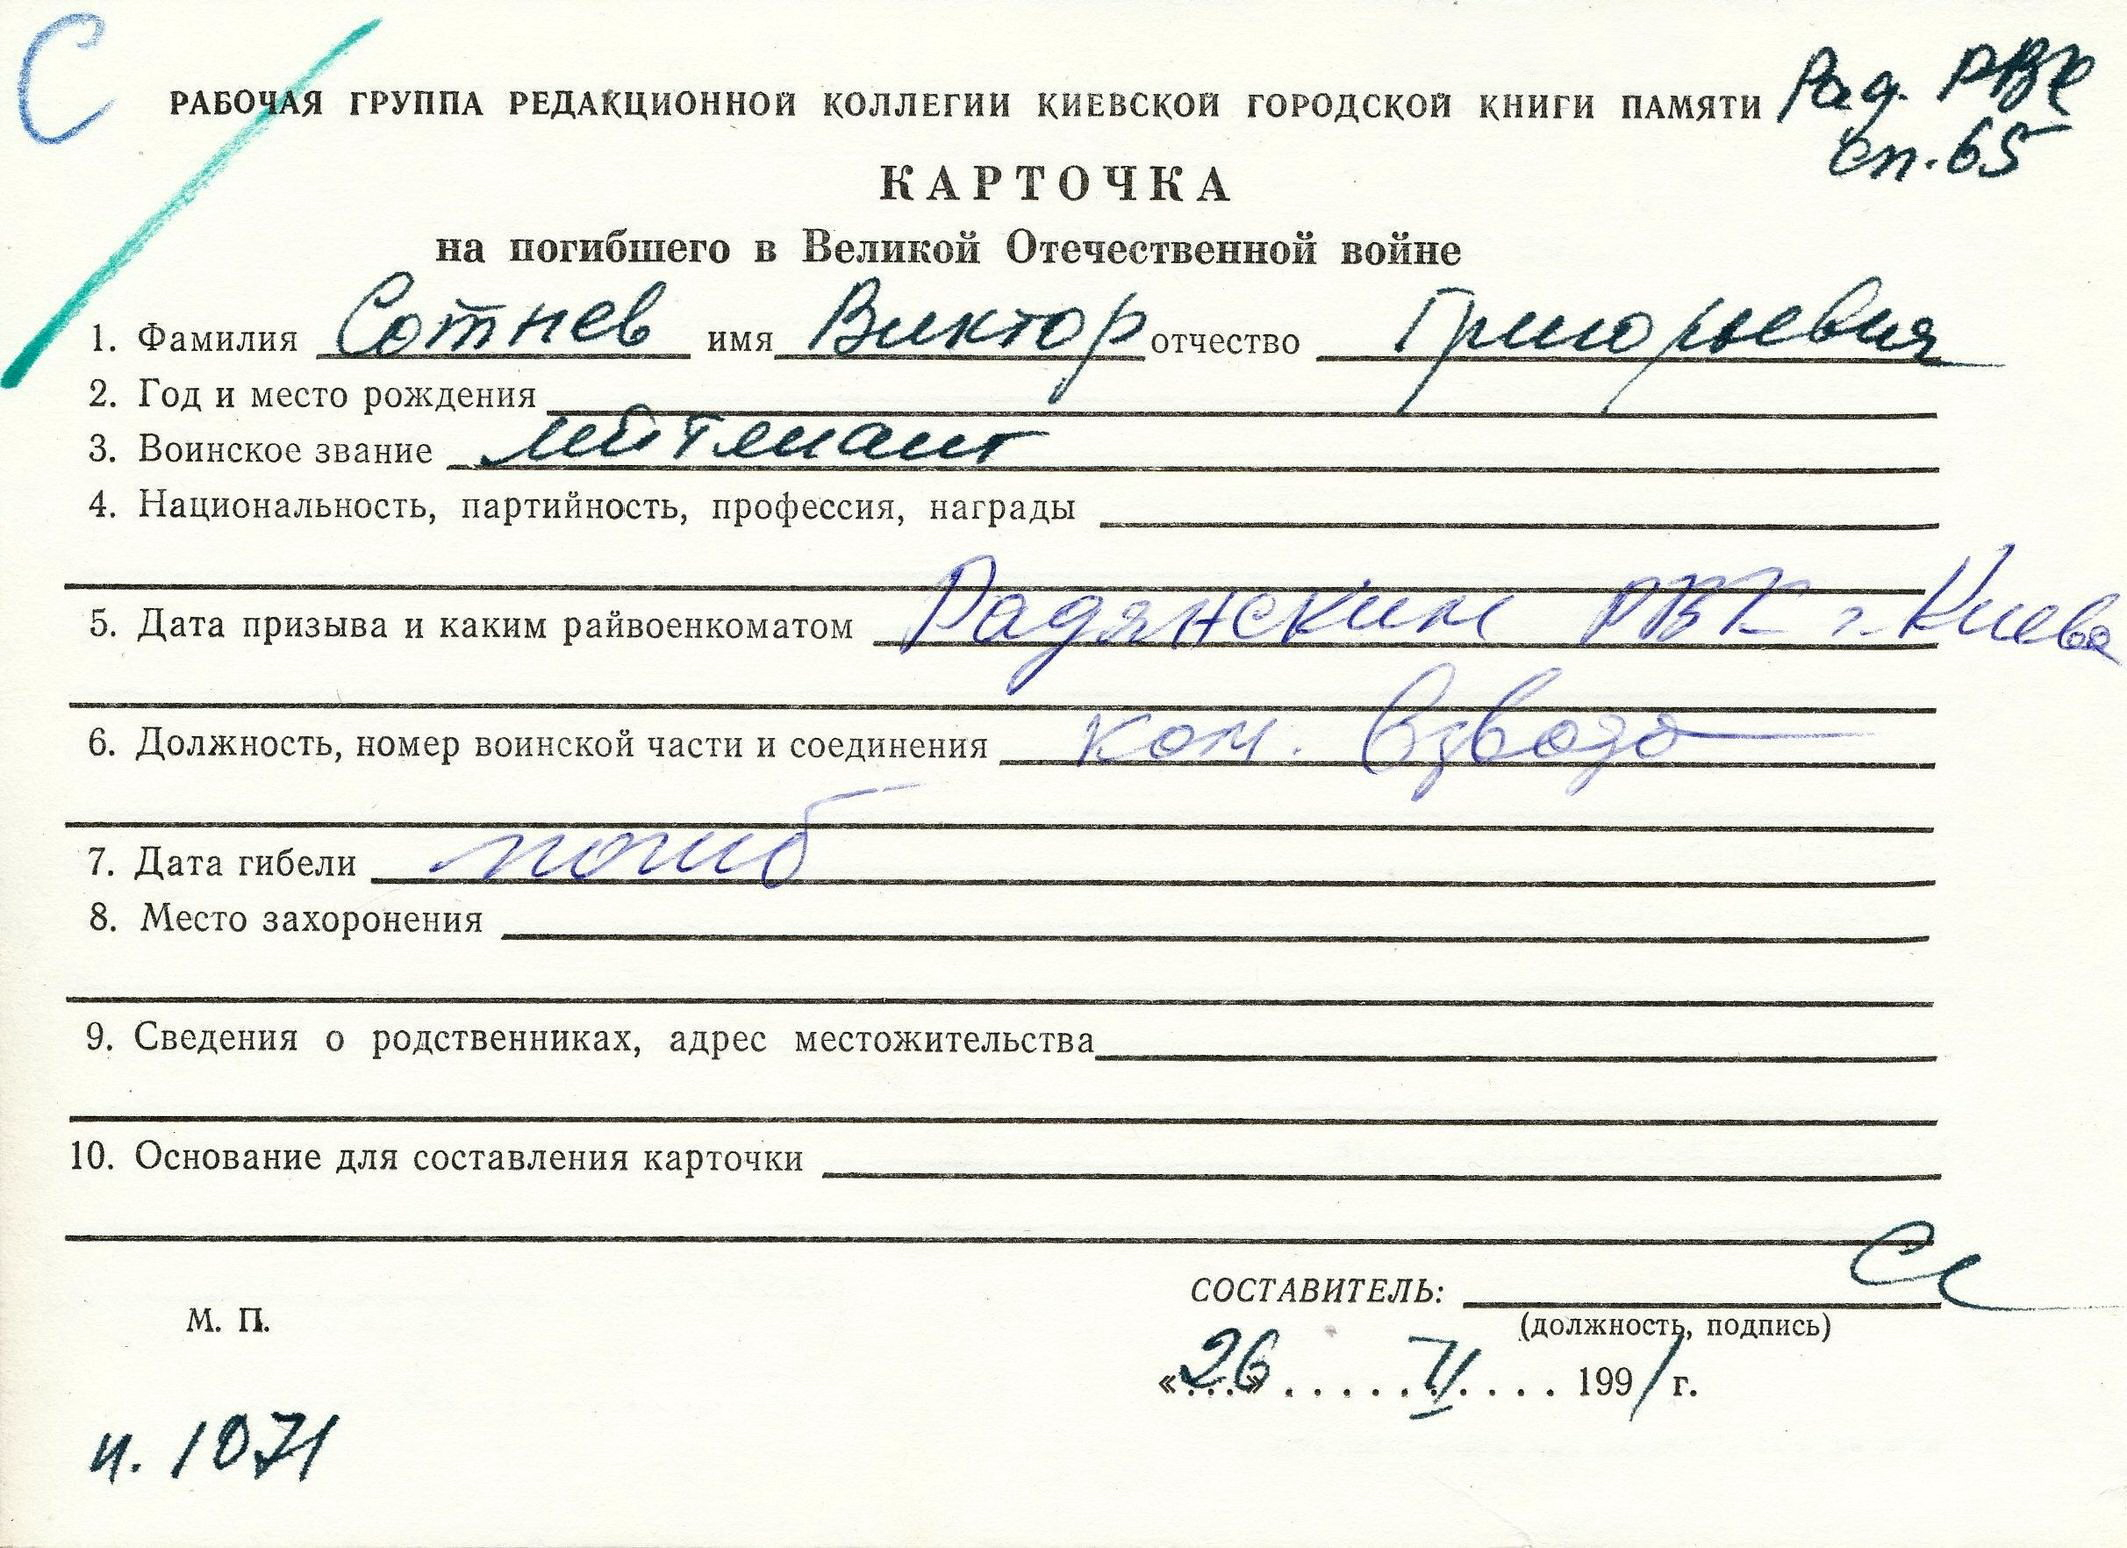 С
РАБОЧАЯ ГРУППА РЕДАКЦИОННОЙ КОЛЛЕГИИ КИЕВСКОЙ ГОРОДСКОЙ КНИГИ ПАМЯТИ Рад. РВК
оп. 65
КАРТОЧКА
на погибшего в Великой Отечественной войне
1. Фамилия Сотнев имя Виктор отчество Григорьевич
2. Год и место рождения
3. Воинское звание лейтенант
4. Национальность, партийность, профессия, награды
5. Дата призыва и каким райвоенкоматом Радянским РВК г. Киева
6. Должность, номер воинской части и соединения ком. взвода
7. Дата гибели погиб
8. Место захоронения
9. Сведения о родственниках, адрес местожительства
10. Основание для составления карточки
СОСТАВИТЕЛЬ:
М. П.
(должность, подпись)
«26» 1991 г.
н. 1071